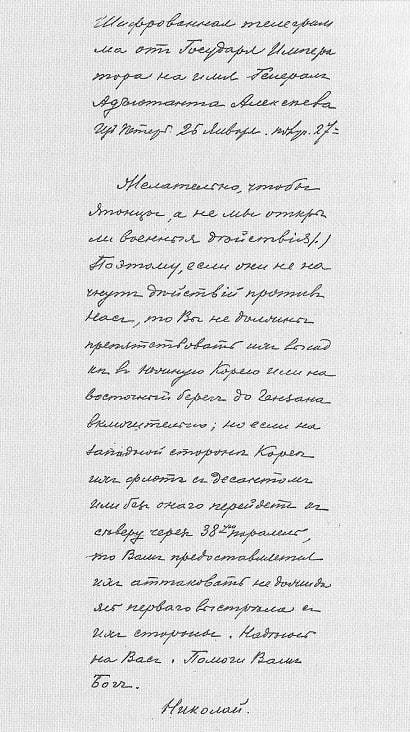 Шифрованная телеграм
ма отъ Государя Импера
тора на имя Генералъ
Адъютанта Алексѣева
Изъ Петерб. 26 Января. получ. 27=
Желательно, чтобы
Японцы, а не мы откры
ли военныя дѣйствія(.)
Поэтому, если они не на
чнутъ дѣйствій противъ
насъ, то Вы не должны
препятствовать ихъ высад
кѣ въ Южную Корею или на
восточный берегъ до Гензана
включительно; но если на
западной сторонѣ Кореи
ихъ флотъ съ десантомъ
или безъ онаго перейдетъ къ
сѣверу черезъ 38ую паралель,
то Вамъ предоставляется
ихъ аттаковать не дожида
ясь перваго выстрѣла съ
ихъ стороны. Надѣюсь
на Васъ. Помоги Вамъ
Богъ.
Николай.